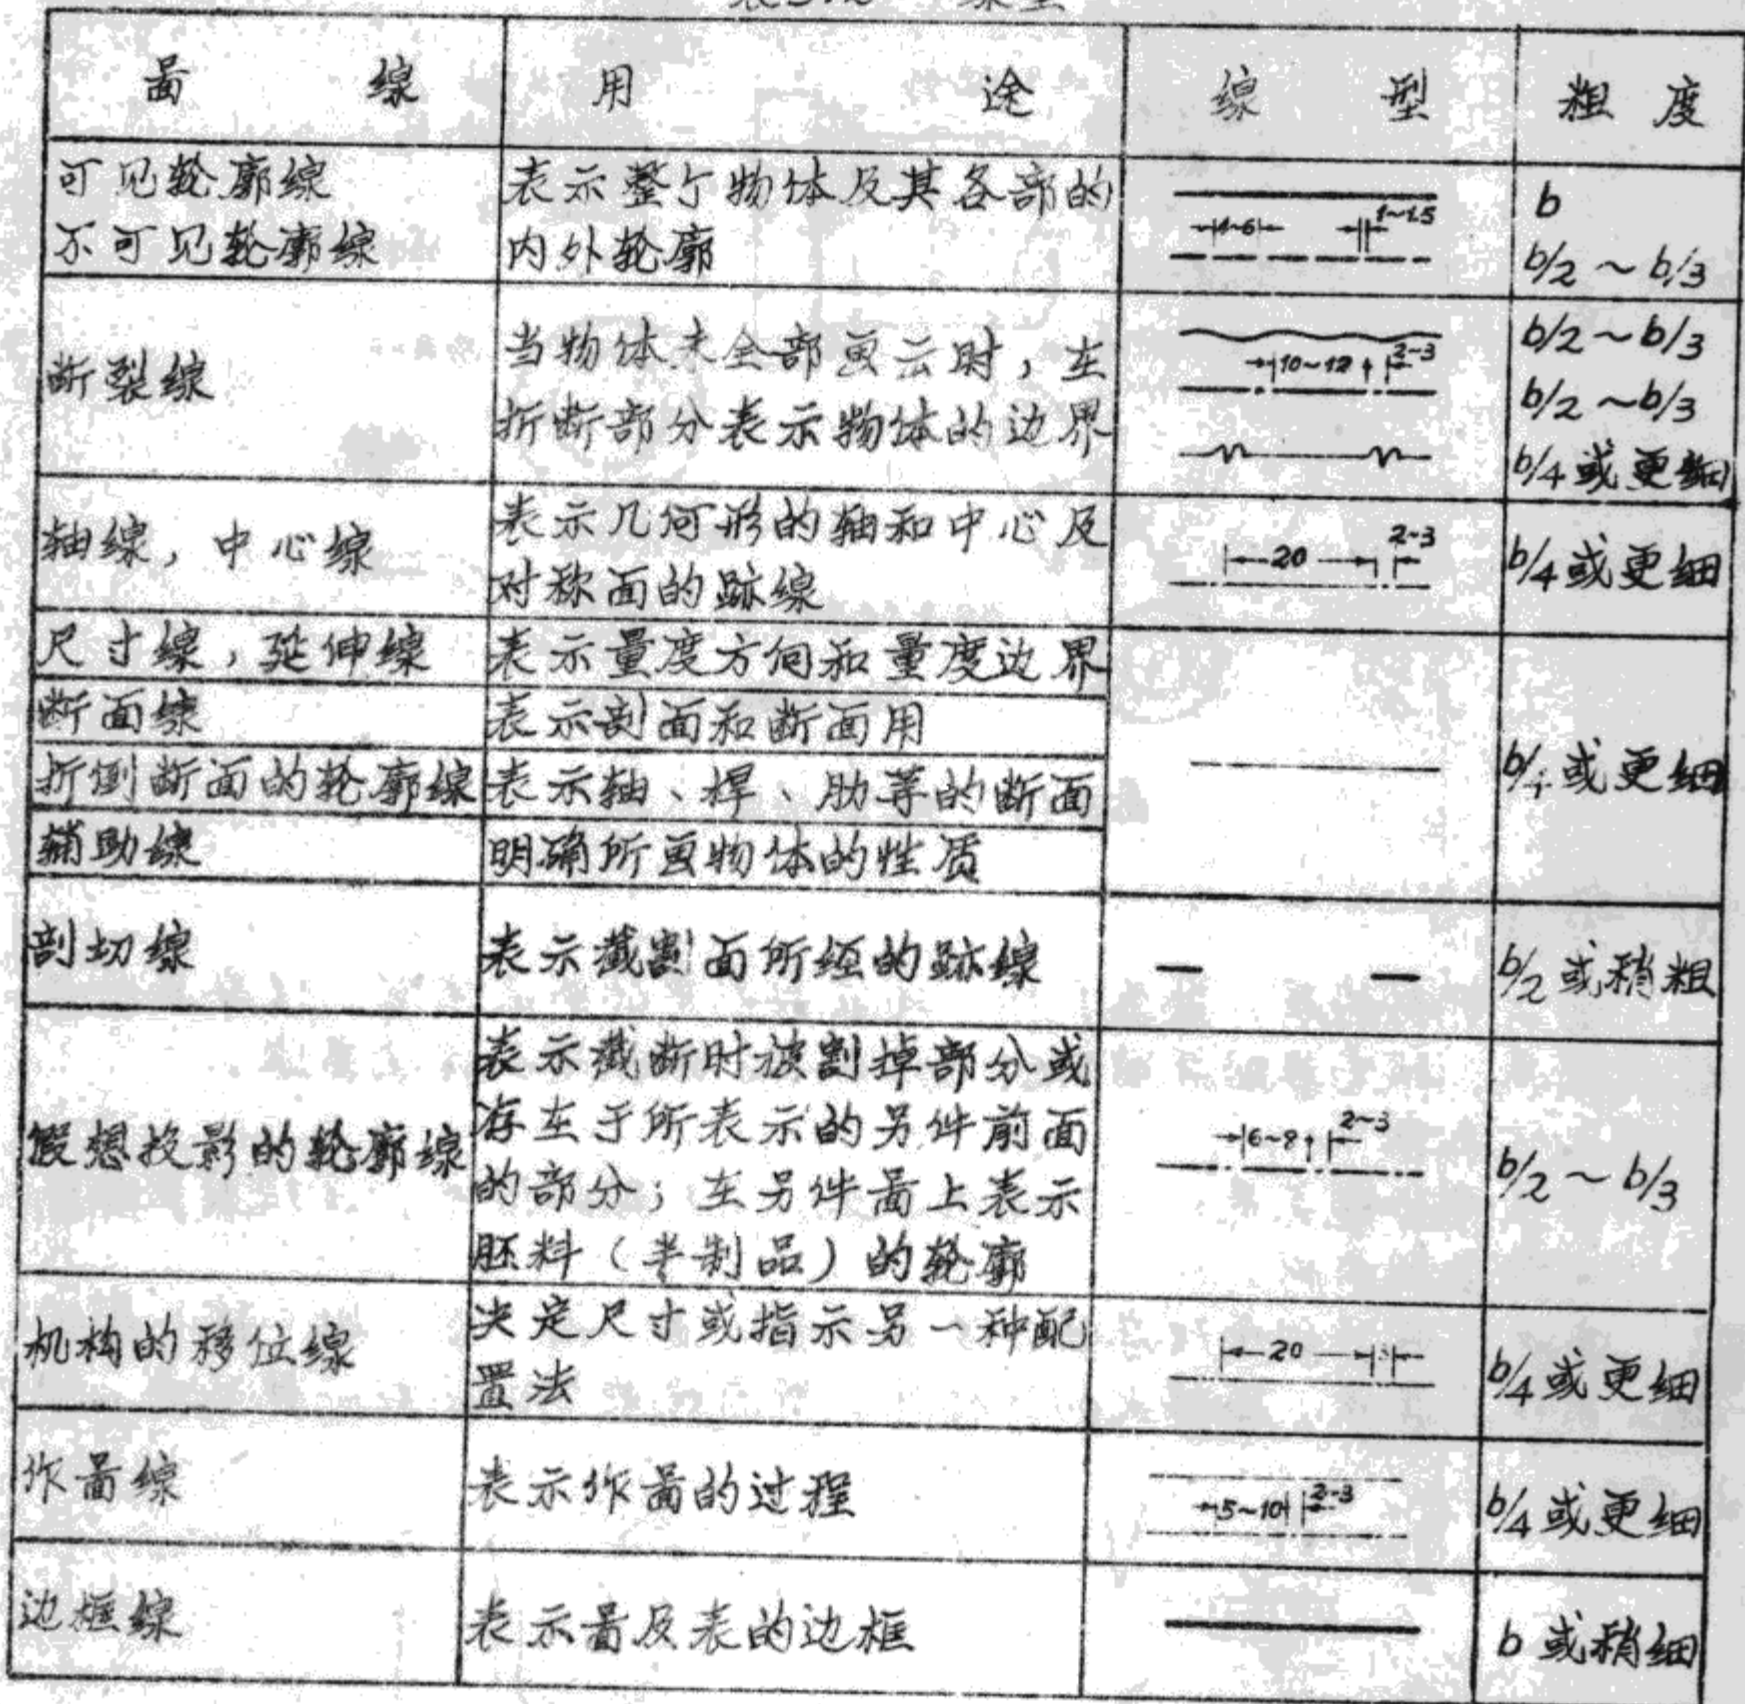 图 线 用 途 线 型 粗 度
可见轮廓线
不可见轮廓线
表示整个物体及其各部的
内外轮廓
1~1.5
4~6
b
b/2~b/3
断裂线
当物体未全部画云时，在
折断部分表示物体的边界
2-3
10~12
b/2~b/3
b/2~b/3
b/4或更细
轴线，中心线
表示几何形的轴和中心及
对称面的跡线
2-3
20
b/4或更细
尺寸线，延伸线
表示量度方向和量度边界
断面线
表示剖面和断面用
折倒断面的轮廓线
表示轴、桿、肋等的断面
辅助线
明确所画物体的性质
b/4或更细
剖切线
表示截割面所经的跡线
b/2或稍粗
假想投影的轮廓线
表示截断时被割掉部分或
存在于所表示的另件前面
的部分；在另件图上表示
胚料（半制品）的轮廓
2~3
6~8
b/2~b/3
机构的移位线
决定尺寸或指示另一种配
置法
20
b/4或更细
作图线
表示作图的过程
5~10
2-3
b/4或更细
边框线
表示图及表的边框
b或稍细